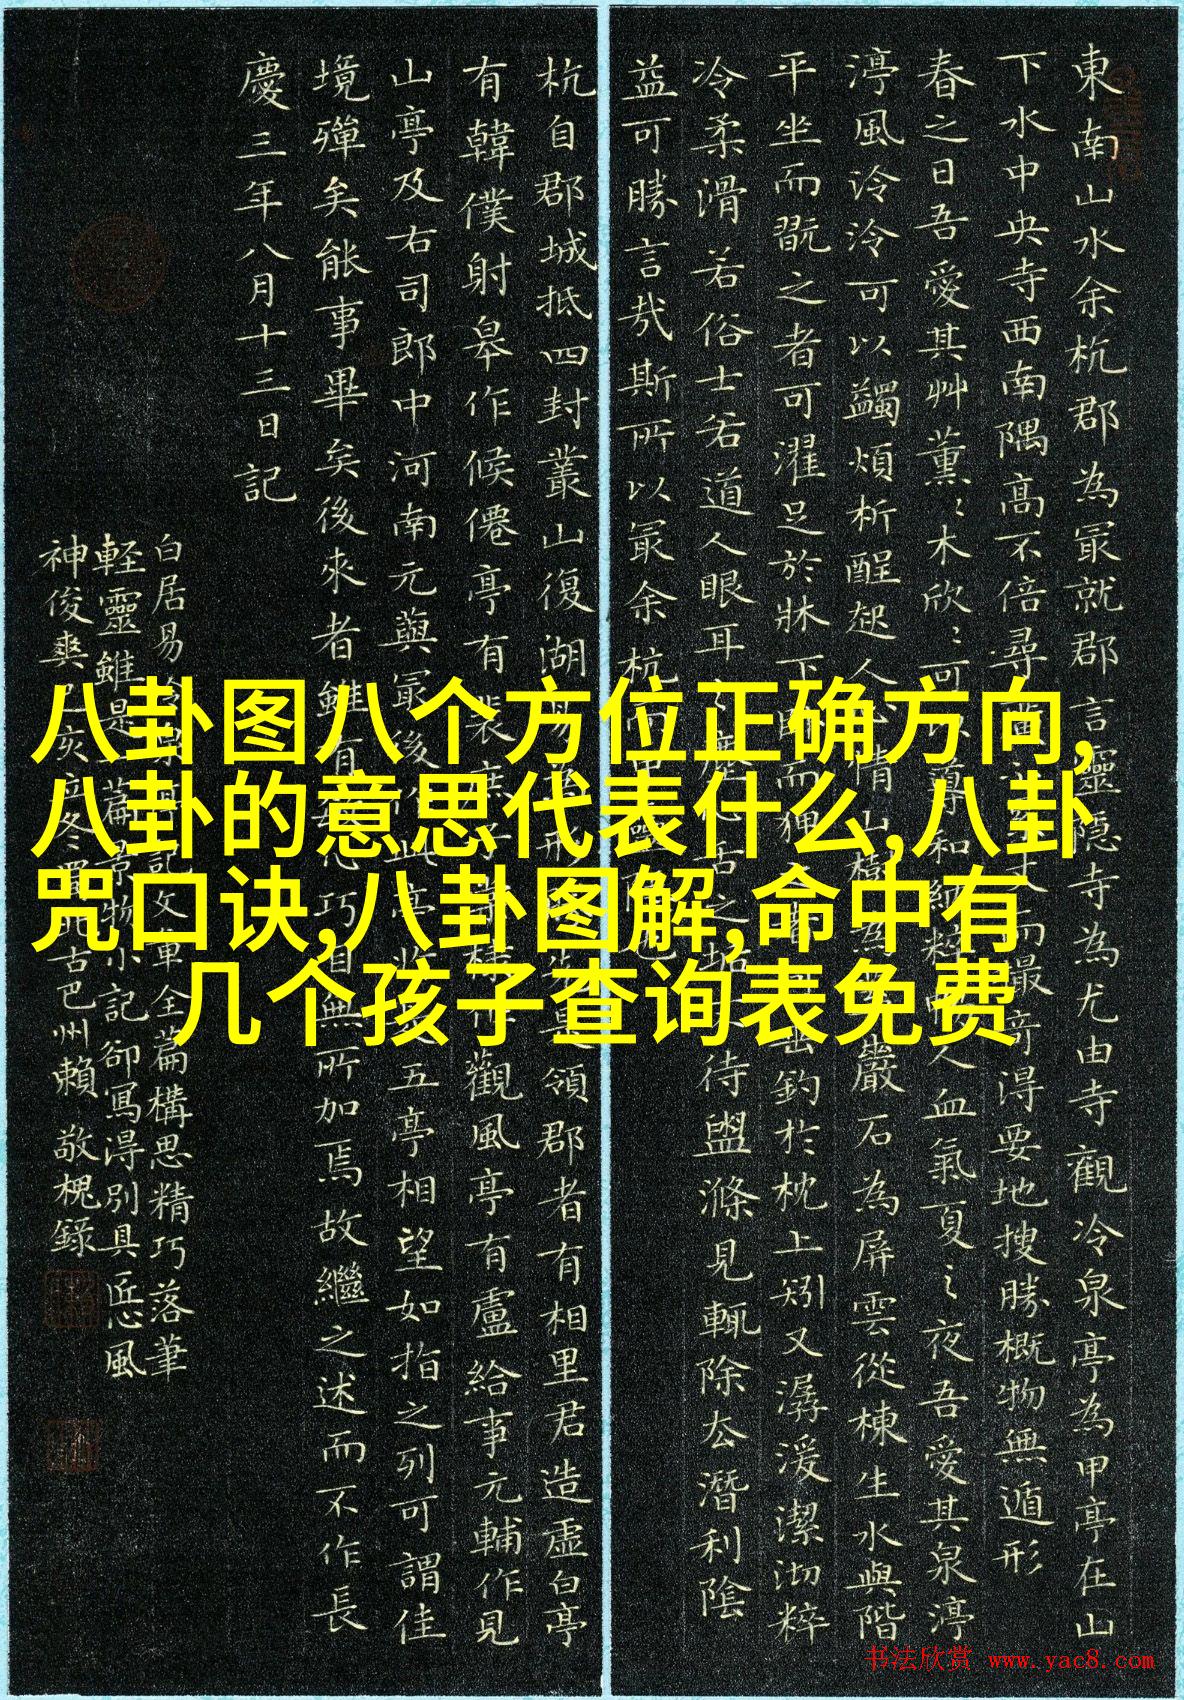 東南山水余杭郡為冣就郡言靈隐寺為尤由寺觀冷泉亭為甲亭在山
下水中央寺西南隅高不倍尋而最竒淂要地搜勝概物無遁形
春之日吾愛其艸薰〻木欣〻可導和納粹人血氣夏之夜吾愛其泉渟
渟風泠泠可以蠲煩析酲起人情山樹為巖石為屏雲從棟生水與階
平坐而翫之者可濯足於牀下臥而狎釣於枕上矧又潺湲潔沏粹
冷柔滑若俗士若道人眼耳之舌之垢待盥滌見輒除去潛利陰
益可勝言哉斯所以冣余杭而
杭自郡城抵四封叢山復湖易形領郡者有相里君造虛白亭
有韓僕射皋作候僊亭有裴庶子觀風亭有盧給事元輔作見
山亭及右司郎中河南元藇冣後作此亭五亭相望如指之列可謂佳
境殫矣能事畢矣後來者雖有巧目無所加焉故繼之述而不作長
慶三年八月十三日記
白居易記文單全篇構思精巧落筆
輕靈雖是一篇景物小記卻寫淂別具匠心風
神俊爽己亥冬古巴州賴敬槐錄
八卦图八个方位正确方向,
八卦的意思代表什么,八卦
咒口诀,八卦图解,命中有
几个孩子查询表免费
书法欣赏 www.yac8.com